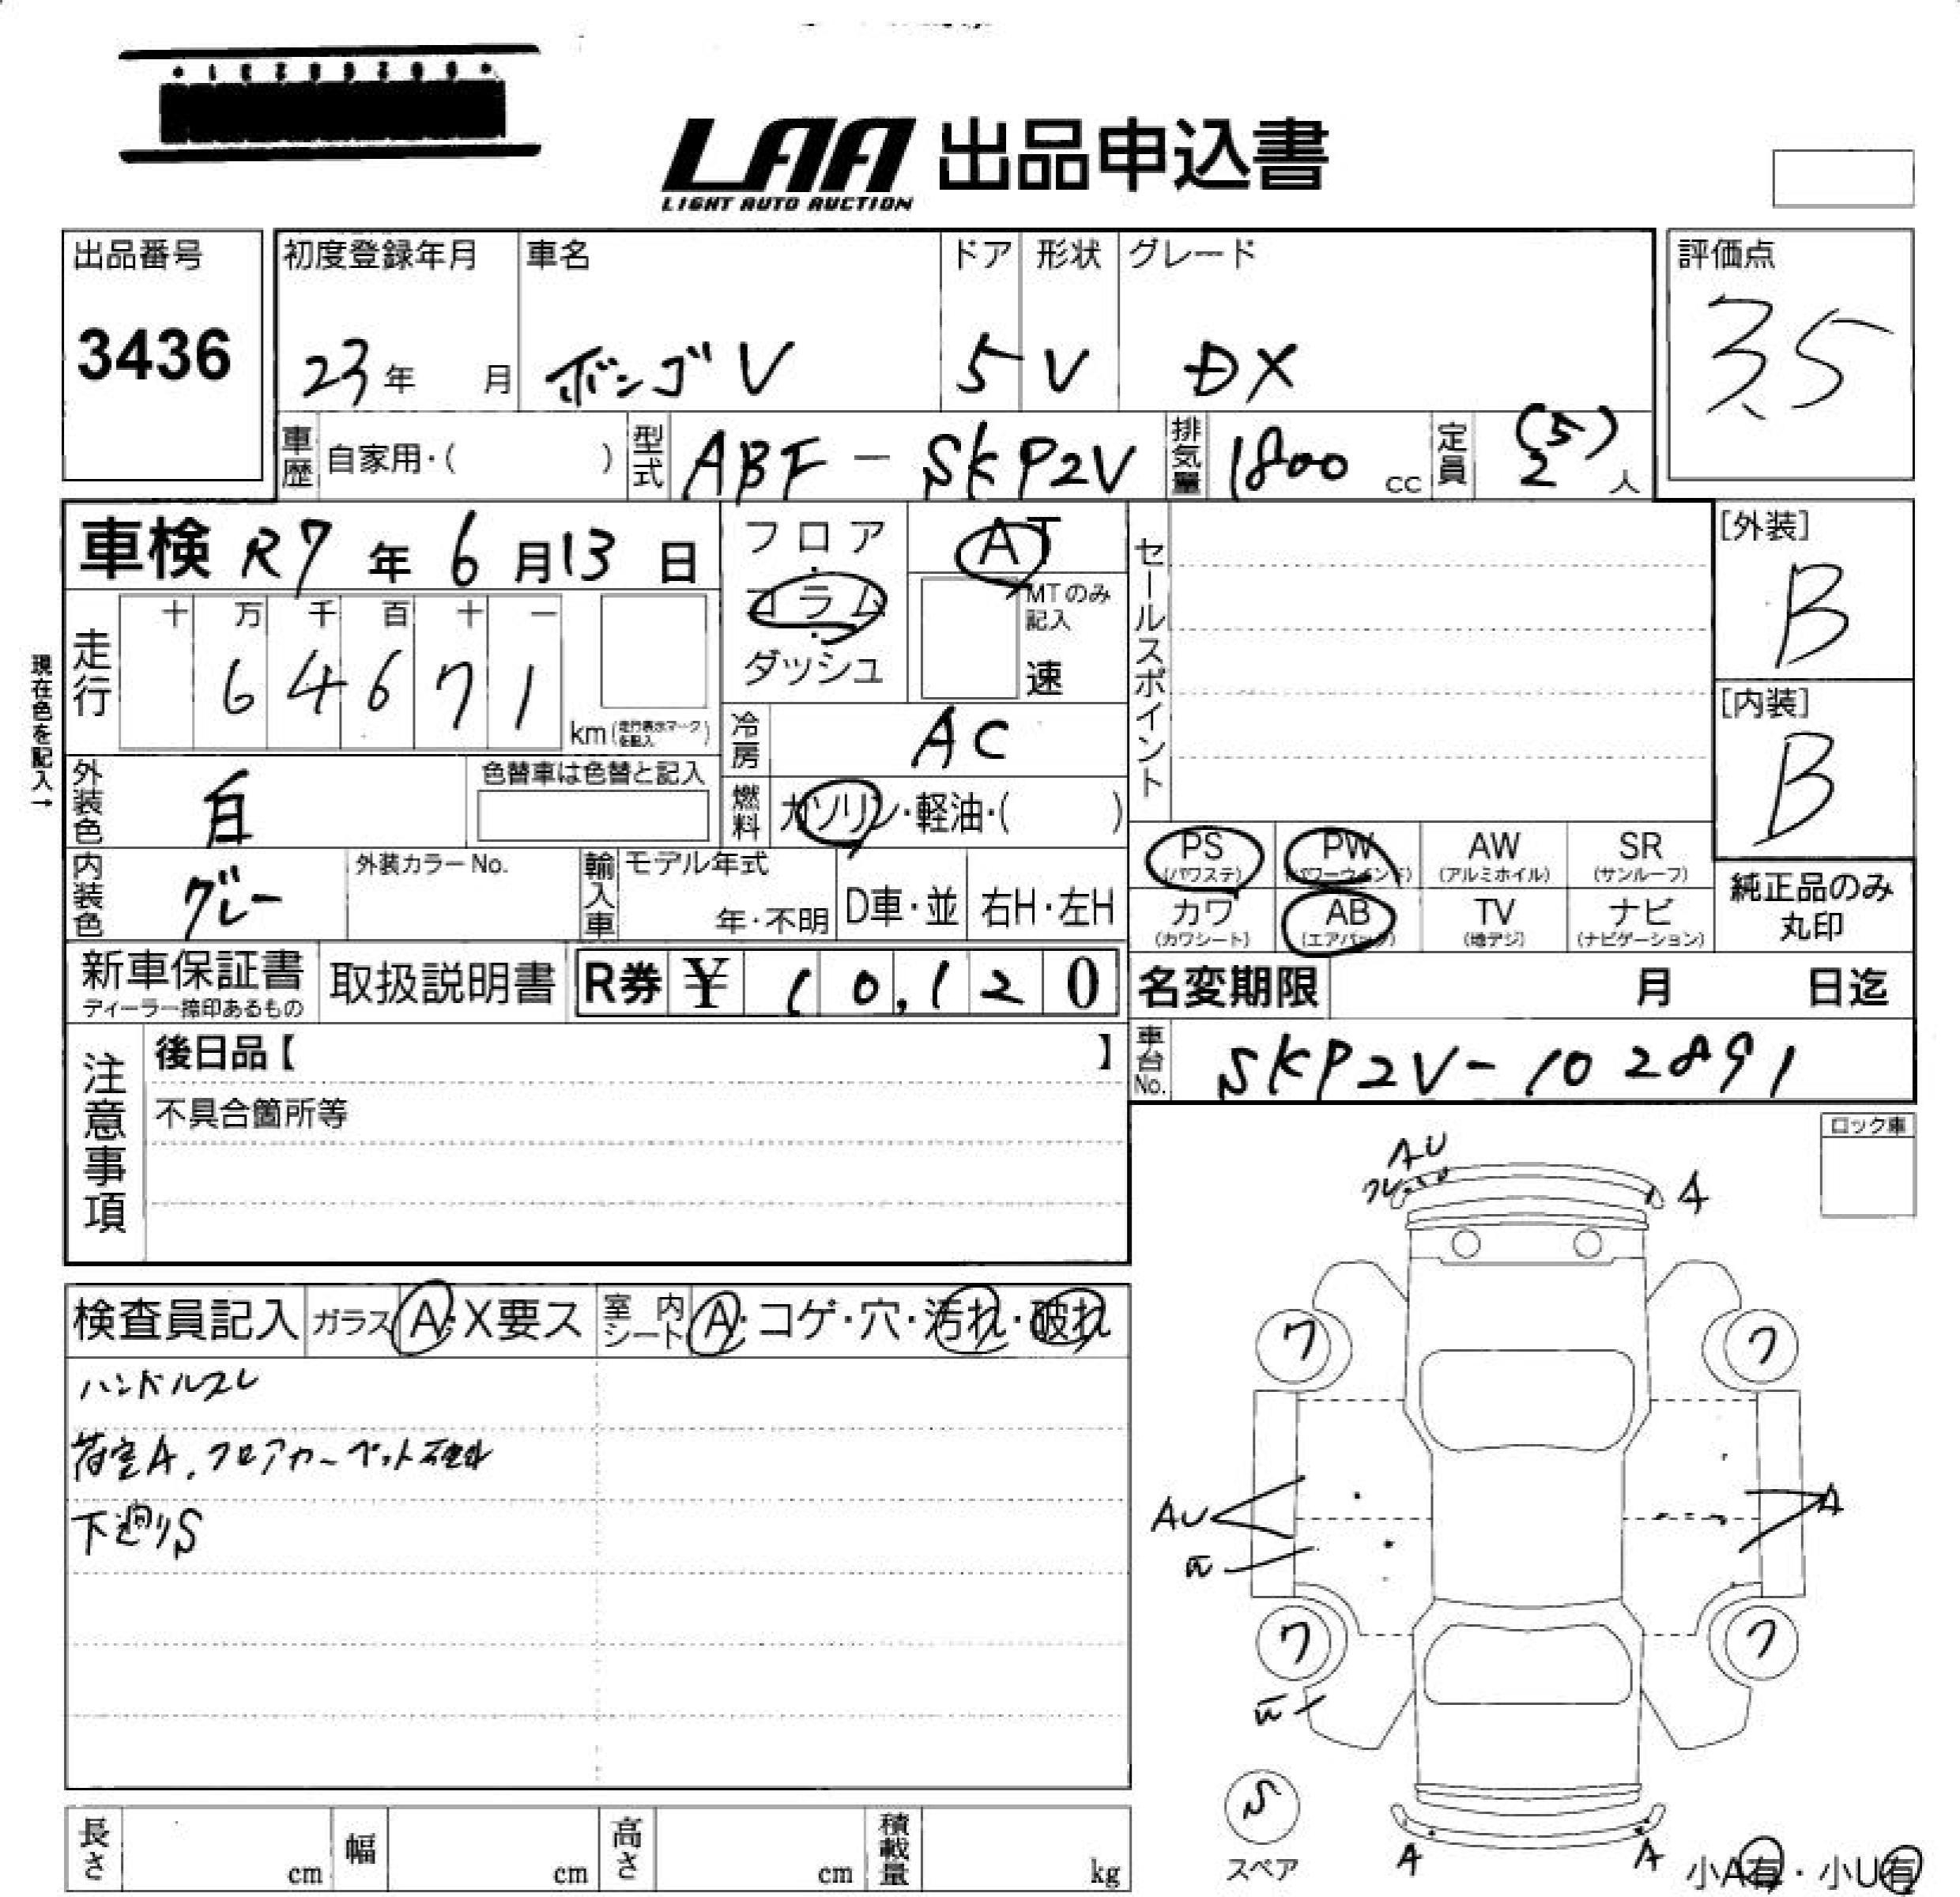 LAA 出品申込書
LIGHT AUTO AUCTION
出品番号
3436
初度登録年月
23年 月
車名
ボンゴV
ドア
5
形状
V
グレード
DX
評価点
3.5
車歴 自家用・( )
型式 ABF-SKP2V
排気量 1800 cc
定員 2 (5) 人
車検 R7年6月13日
フロア・コラム・ダッシュ
AT
MTのみ記入
速
セールスポイント
[外装]
B
[内装]
B
現在色を記入→
走行
十 万 千 百 十 一
6 4 6 7 1
km(走行表示マークを記入)
冷房 AC
外装色 白
色替車は色替と記入
燃料 ガソリン・軽油・( )
内装色 グレー
外装カラーNo.
輸入車
モデル年式
年・不明
D車・並
右H・左H
PS (パワステ)
PW (パワーウインド)
AW (アルミホイル)
SR (サンルーフ)
カワ (カワシート)
AB (エアバック)
TV (地デジ)
ナビ (ナビゲーション)
純正品のみ丸印
新車保証書
ディーラー捺印あるもの
取扱説明書
R券 ¥ 10,120
名変期限 月 日迄
注意事項
後日品【 】
不具合箇所等
車台No. SKP2V-102891
ロック車
検査員記入 ガラス A・X要ス
室内シート A・コゲ・穴・汚れ・破れ
ハンドルスレ
荷室A、フロアカーペット破れ
下廻りS
AU
A
ワ
ワ
AU
A
ワ
ワ
S
スペア
A
A
小A有・小U有
長さ cm
幅 cm
高さ cm
積載量 kg